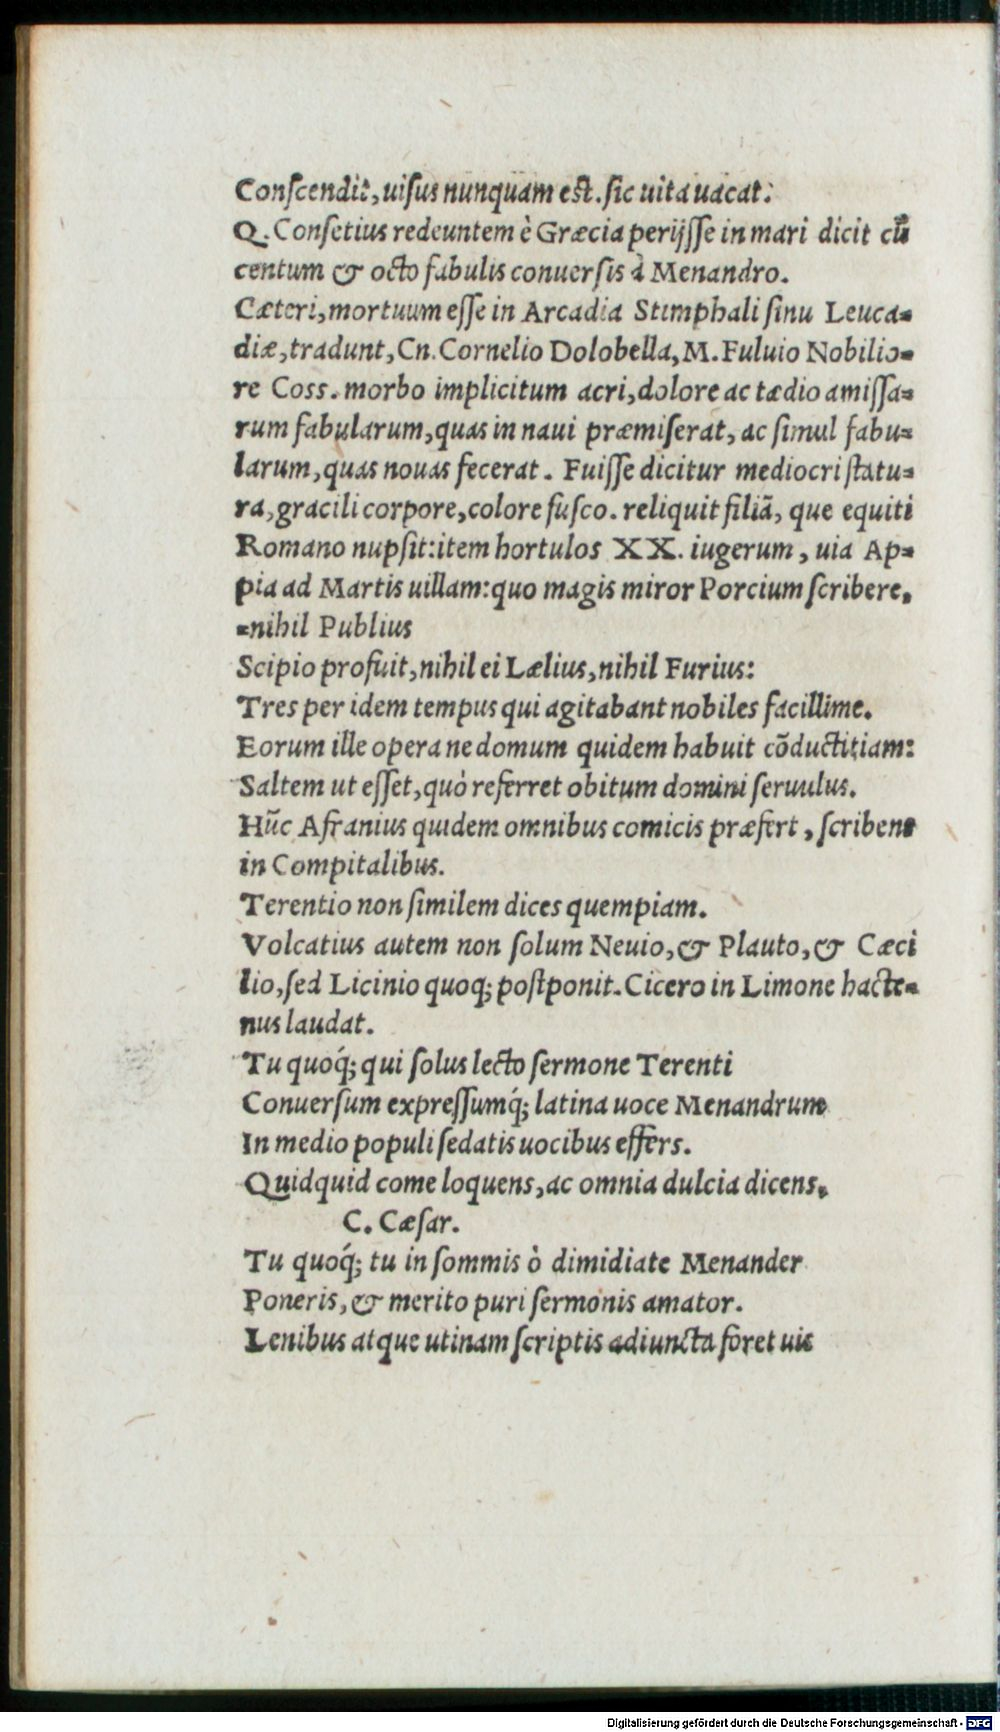 Conſcendit, uiſus nunquam eſt. ſic uita uacat:
Q. Conſetius redeuntem è Græcia perijſſe in mari dicit cū
centum & octo fabulis conuerſis à Menandro.
Cæteri, mortuum eſſe in Arcadia Stimphali ſinu Leuca-
diæ, tradunt, Cn. Cornelio Dolobella, M. Fuluio Nobilio-
re Coss. morbo implicitum acri, dolore ac tædio amiſſa-
rum fabularum, quas in naui præmiſerat, ac ſimul fabu-
larum, quas nouas fecerat. Fuiſſe dicitur mediocri ſtatu-
ra, gracili corpore, colore fuſco. reliquit filiā, que equiti
Romano nupſit: item hortulos XX. iugerum, uia Ap-
pia ad Martis uillam: quo magis miror Porcium ſcribere,
-nihil Publius
Scipio profuit, nihil ei Lælius, nihil Furius:
Tres per idem tempus qui agitabant nobiles facillime.
Eorum ille opera ne domum quidem habuit cōductitiam:
Saltem ut eſſet, quò referret obitum domini ſeruulus.
Hūc Afranius quidem omnibus comicis præfert, ſcribens
in Compitalibus.
Terentio non ſimilem dices quempiam.
Volcatius autem non ſolum Neuio, & Plauto, & Cæci
lio, ſed Licinio quoq; poſtponit. Cicero in Limone hacte-
nus laudat.
Tu quoq́; qui ſolus lecto ſermone Terenti
Conuerſum expreſſumq́; latina uoce Menandrum
In medio populi ſedatis uocibus effers.
Quidquid come loquens, ac omnia dulcia dicens.
C. Cæſar.
Tu quoq́; tu in ſommis ò dimidiate Menander
Poneris, & merito puri ſermonis amator.
Lenibus atque utinam ſcriptis adiuncta foret uis
Digitalisierung gefördert durch die Deutsche Forschungsgemeinschaft - DFG